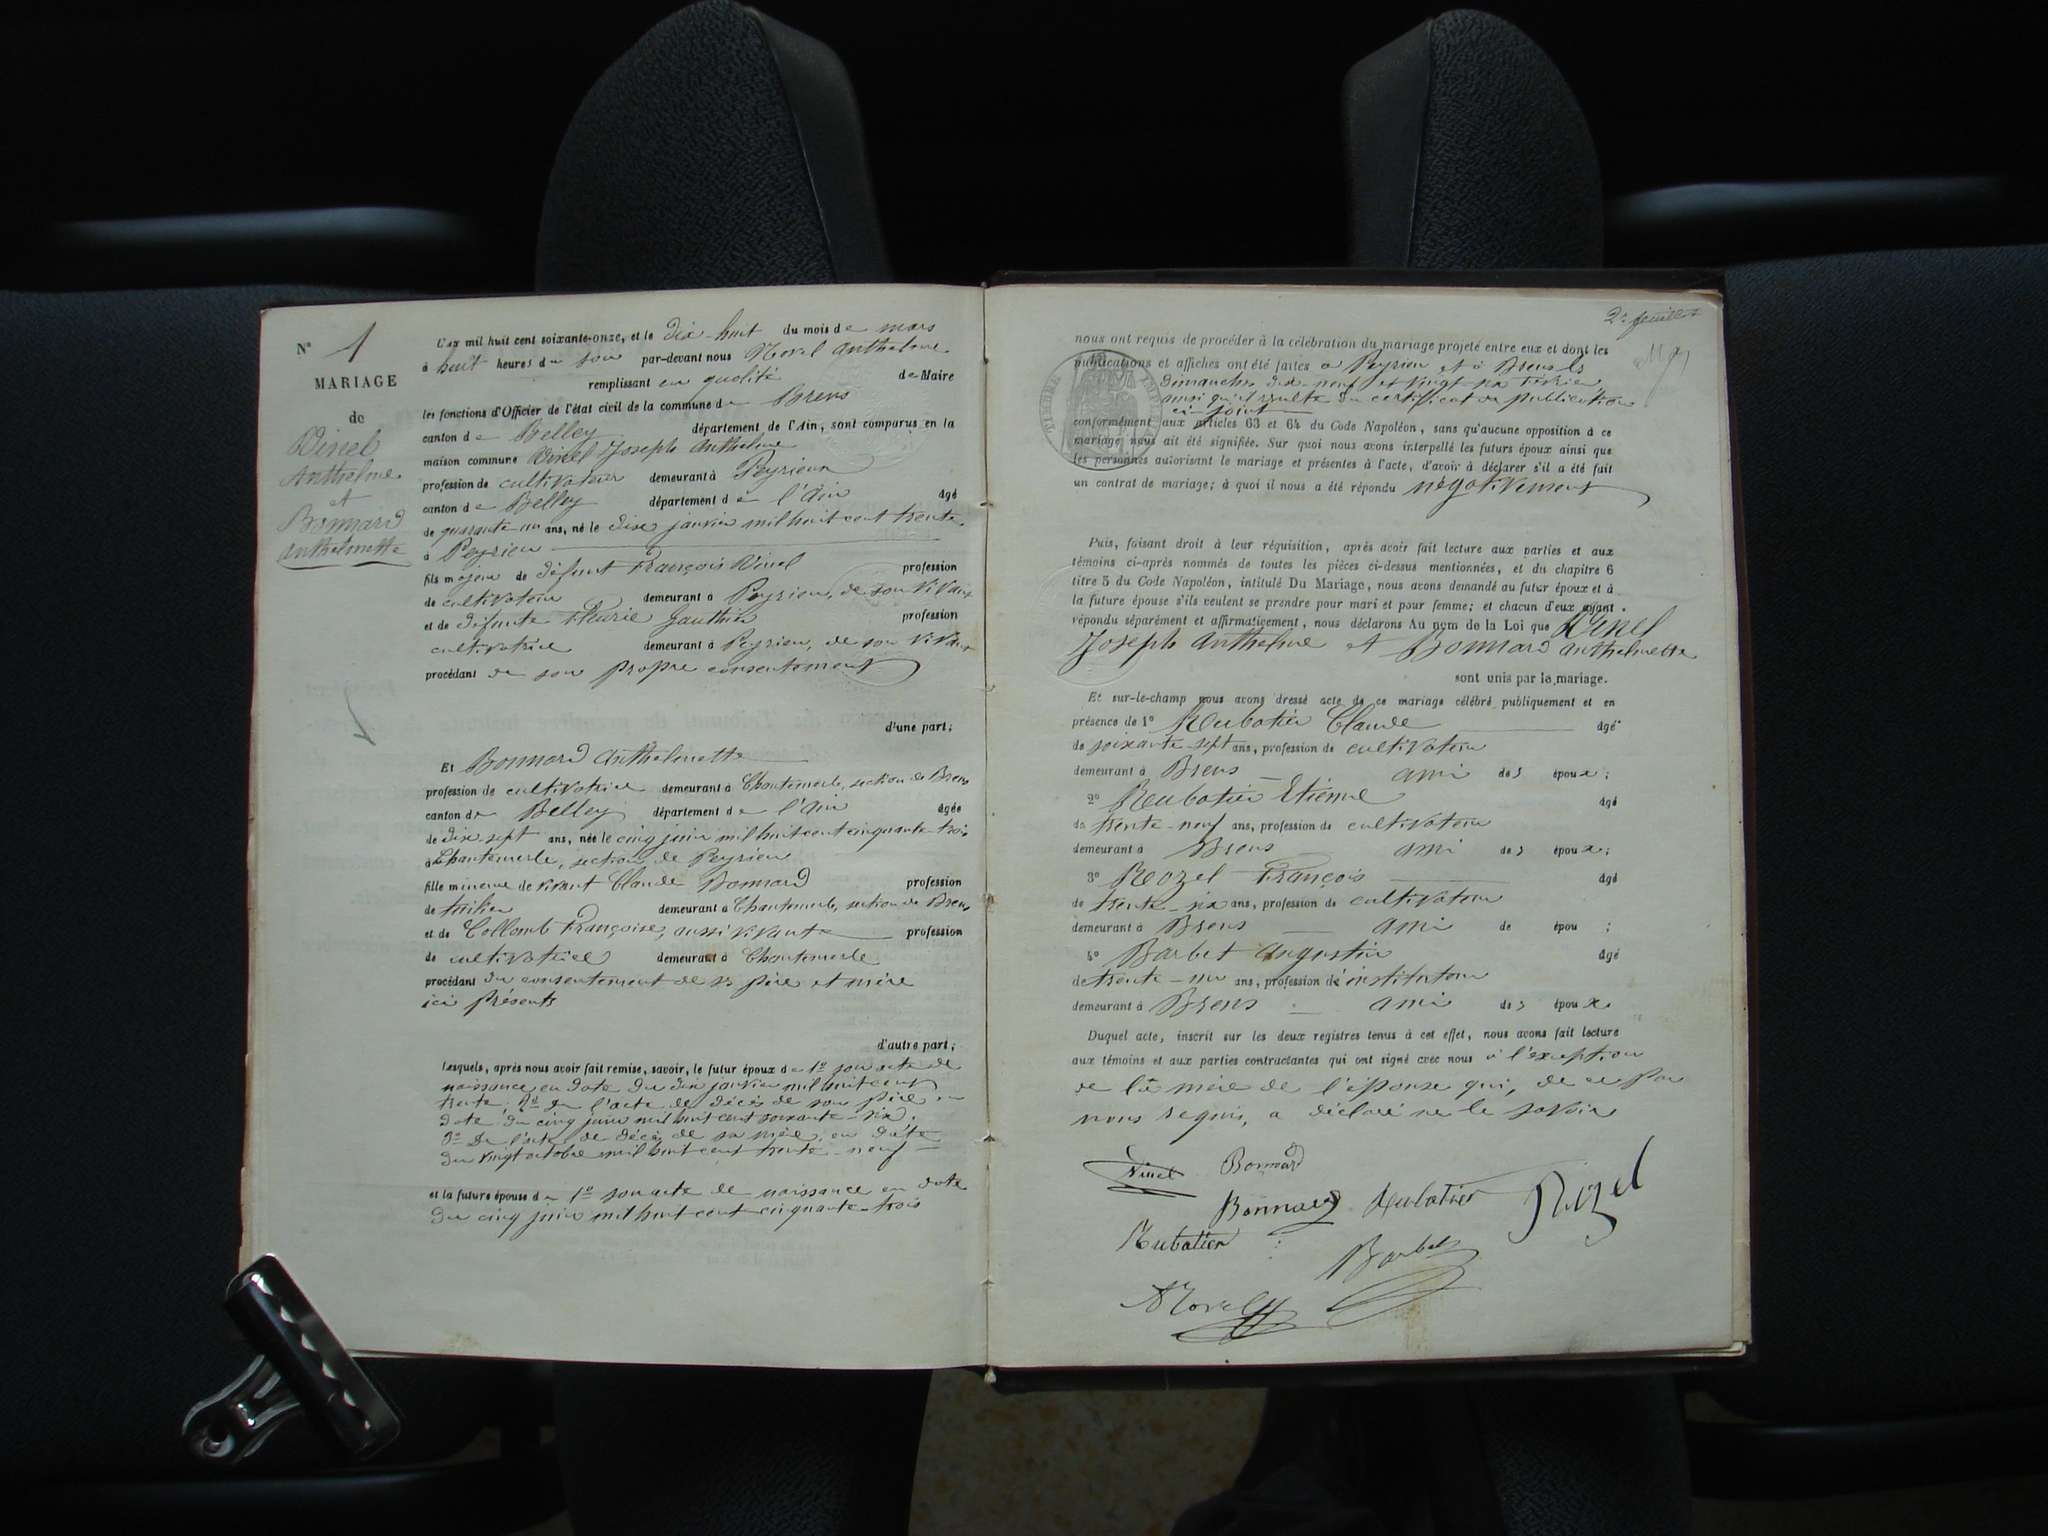 N° 1
MARIAGE
de
Vinel
Anthelme
et
Bonnard
Anthelmette
L'an mil huit cent soixante-onze, et le dix-huit du mois de mars
à huit heures du soir par-devant nous Morel Anthelme
remplissant en qualité de Maire
les fonctions d'Officier de l'état civil de la commune de Brens
canton de Belley département de l'Ain, sont comparus en la
maison commune Vinel Joseph Anthelme
profession de cultivateur demeurant à Peyrieu
canton de Belley département de l'Ain âgé
de quarante un ans, né le dix janvier mil huit cent trente
à Peyrieu
fils majeur de défunt François Vinel profession
de cultivateur demeurant à Peyrieu, de son vivant
et de défunte Fleurie Gauthier profession
cultivatrice demeurant à Peyrieu, de son vivant
procédant de son propre consentement
d'une part;
Et Bonnard Anthelmette
profession de cultivatrice demeurant à Chantemerle, section de Brens
canton de Belley département de l'Ain âgée
de dix sept ans, née le cinq juin mil huit cent cinquante-trois
à Chantemerle, section de Peyrieu
fille mineure de vivant Claude Bonnard profession
de demeurant à Chantemerle, section de Brens
et de Collomb Françoise, aussi vivante profession
de cultivatrice demeurant à Chantemerle
procédant du consentement de ses père et mère
ici présents
d'autre part;
Lesquels, après nous avoir fait remise, savoir, le futur époux de 1° son acte de
naissance en date du dix janvier mil huit cent
trente, 2° de l'acte de décès de son père en
date du cinq juin mil huit cent soixante-six,
3° de l'acte de décès de sa mère, en date
du vingt octobre mil huit cent trente-neuf
et la future épouse de 1° son acte de naissance en date
du cinq juin mil huit cent cinquante-trois
2e feuillet
nous ont requis de procéder à la célébration du mariage projeté entre eux et dont les
publications et affiches ont été faites à Peyrieu et à Brens les
dimanches dix-neuf et vingt-six février,
ainsi qu'il résulte du certificat de publication
ci-joint
conformément aux articles 63 et 64 du Code Napoléon, sans qu'aucune opposition à ce
mariage nous ait été signifiée. Sur quoi nous avons interpellé les futurs époux ainsi que
les personnes autorisant le mariage et présentes à l'acte, d'avoir à déclarer s'il a été fait
un contrat de mariage; à quoi il nous a été répondu négativement
Puis, faisant droit à leur réquisition, après avoir fait lecture aux parties et aux
témoins ci-après nommés de toutes les pièces ci-dessus mentionnées, et du chapitre 6
titre 5 du Code Napoléon, intitulé Du Mariage, nous avons demandé au futur époux et à
la future épouse s'ils veulent se prendre pour mari et pour femme; et chacun d'eux ayant
répondu séparément et affirmativement, nous déclarons Au nom de la Loi que Vinel
Joseph Anthelme et Bonnard Anthelmette
sont unis par le mariage.
Et sur-le-champ nous avons dressé acte de ce mariage célébré publiquement et en
présence de 1° Rubatier Claude âgé
de soixante-sept ans, profession de cultivateur
demeurant à Brens ami des époux;
2° Rubatier Etienne âgé
de trente-neuf ans, profession de cultivateur
demeurant à Brens ami des époux;
3° Rozel François âgé
de trente-six ans, profession de cultivateur
demeurant à Brens ami de épou ;
4° Barbet Augustin âgé
de trente-un ans, profession de instituteur
demeurant à Brens ami des époux.
Duquel acte, inscrit sur les deux registres tenus à cet effet, nous avons fait lecture
aux témoins et aux parties contractantes qui ont signé avec nous à l'exception
de la mère de l'épouse qui, de ce par
nous requis, a déclaré ne le savoir
Vinel Bonnard
Bonnard Rubatier Rozel
Rubatier
Barbet
A Morel